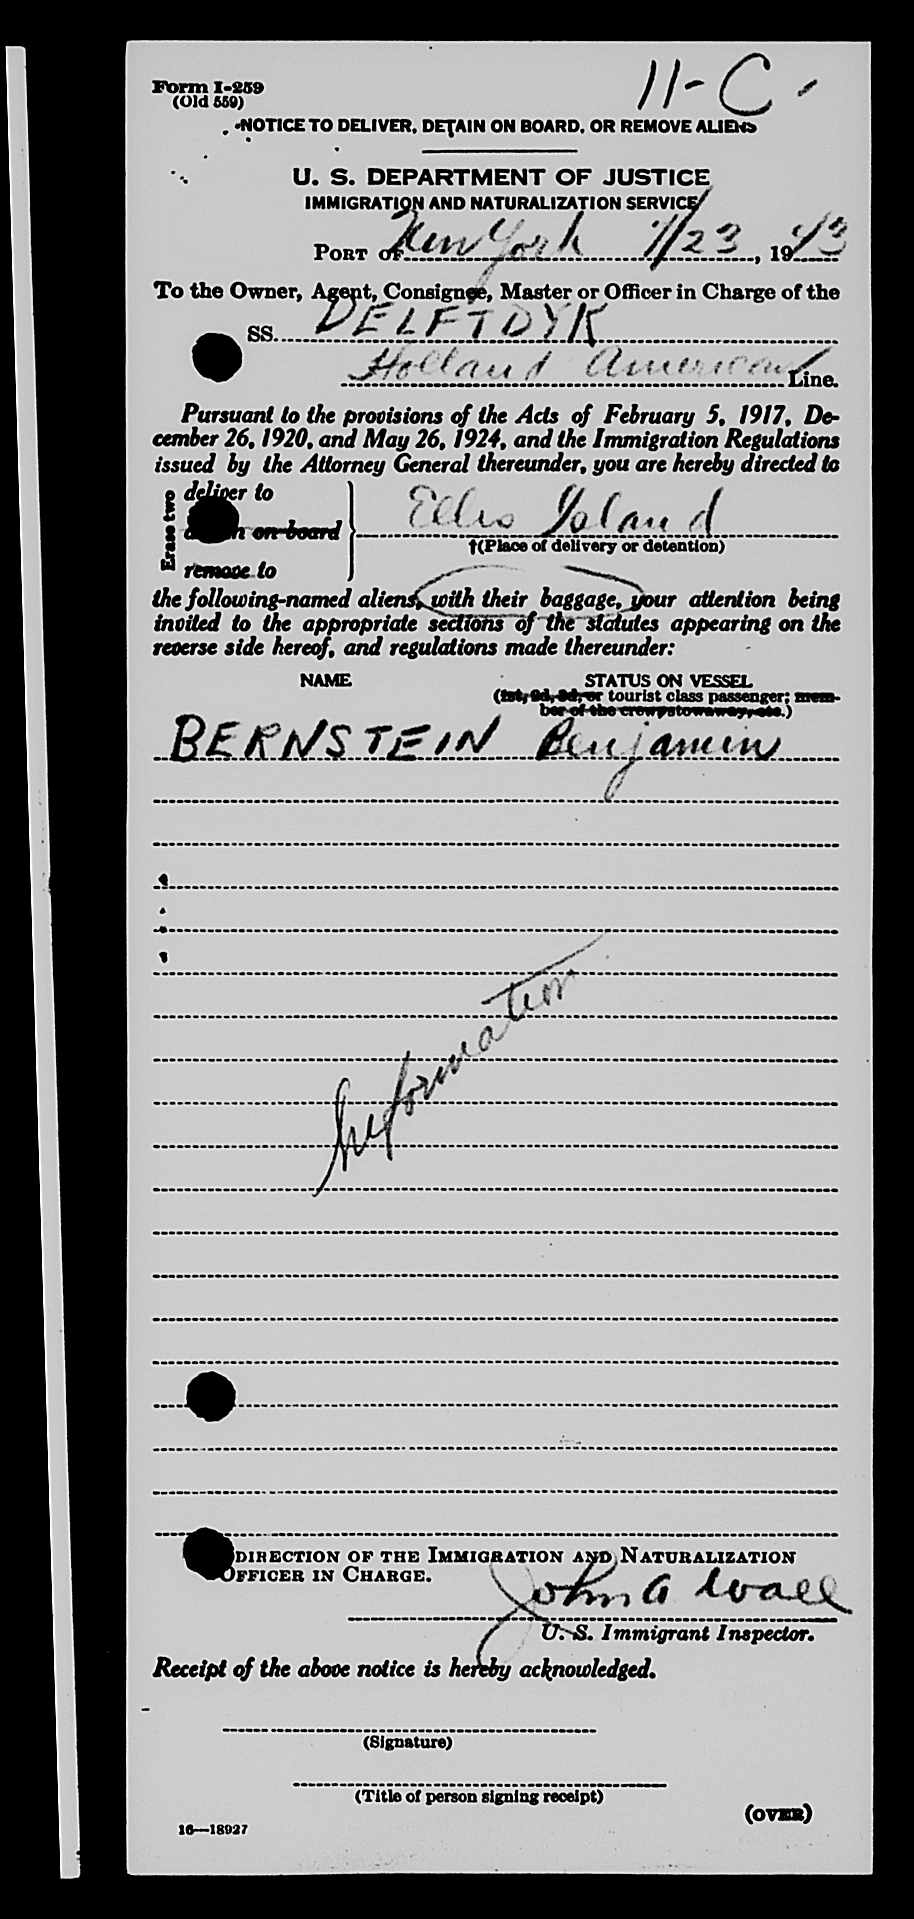 Form I-259
(Old 559)
11-C
NOTICE TO DELIVER, DETAIN ON BOARD, OR REMOVE ALIENS
U. S. DEPARTMENT OF JUSTICE
IMMIGRATION AND NATURALIZATION SERVICE
PORT OF New York 1/23, 1943
To the Owner, Agent, Consignee, Master or Officer in Charge of the
SS. DELFTDYK
Holland American Line.
Pursuant to the provisions of the Acts of February 5, 1917, De-
cember 26, 1920, and May 26, 1924, and the Immigration Regulations
issued by the Attorney General thereunder, you are hereby directed to
Erase two
deliver to
on board
remove to
Ellis Island
†(Place of delivery or detention)
the following-named aliens, with their baggage, your attention being
invited to the appropriate sections of the statutes appearing on the
reverse side hereof, and regulations made thereunder:
NAME STATUS ON VESSEL
(1st, 2d, 3d, or tourist class passenger; mem-
ber of the crew, stowaway, etc.)
BERNSTEIN Benjamin
Information
DIRECTION OF THE IMMIGRATION AND NATURALIZATION
OFFICER IN CHARGE.
John A Wall
U. S. Immigrant Inspector.
Receipt of the above notice is hereby acknowledged.
(Signature)
(Title of person signing receipt)
(OVER)
16—18927